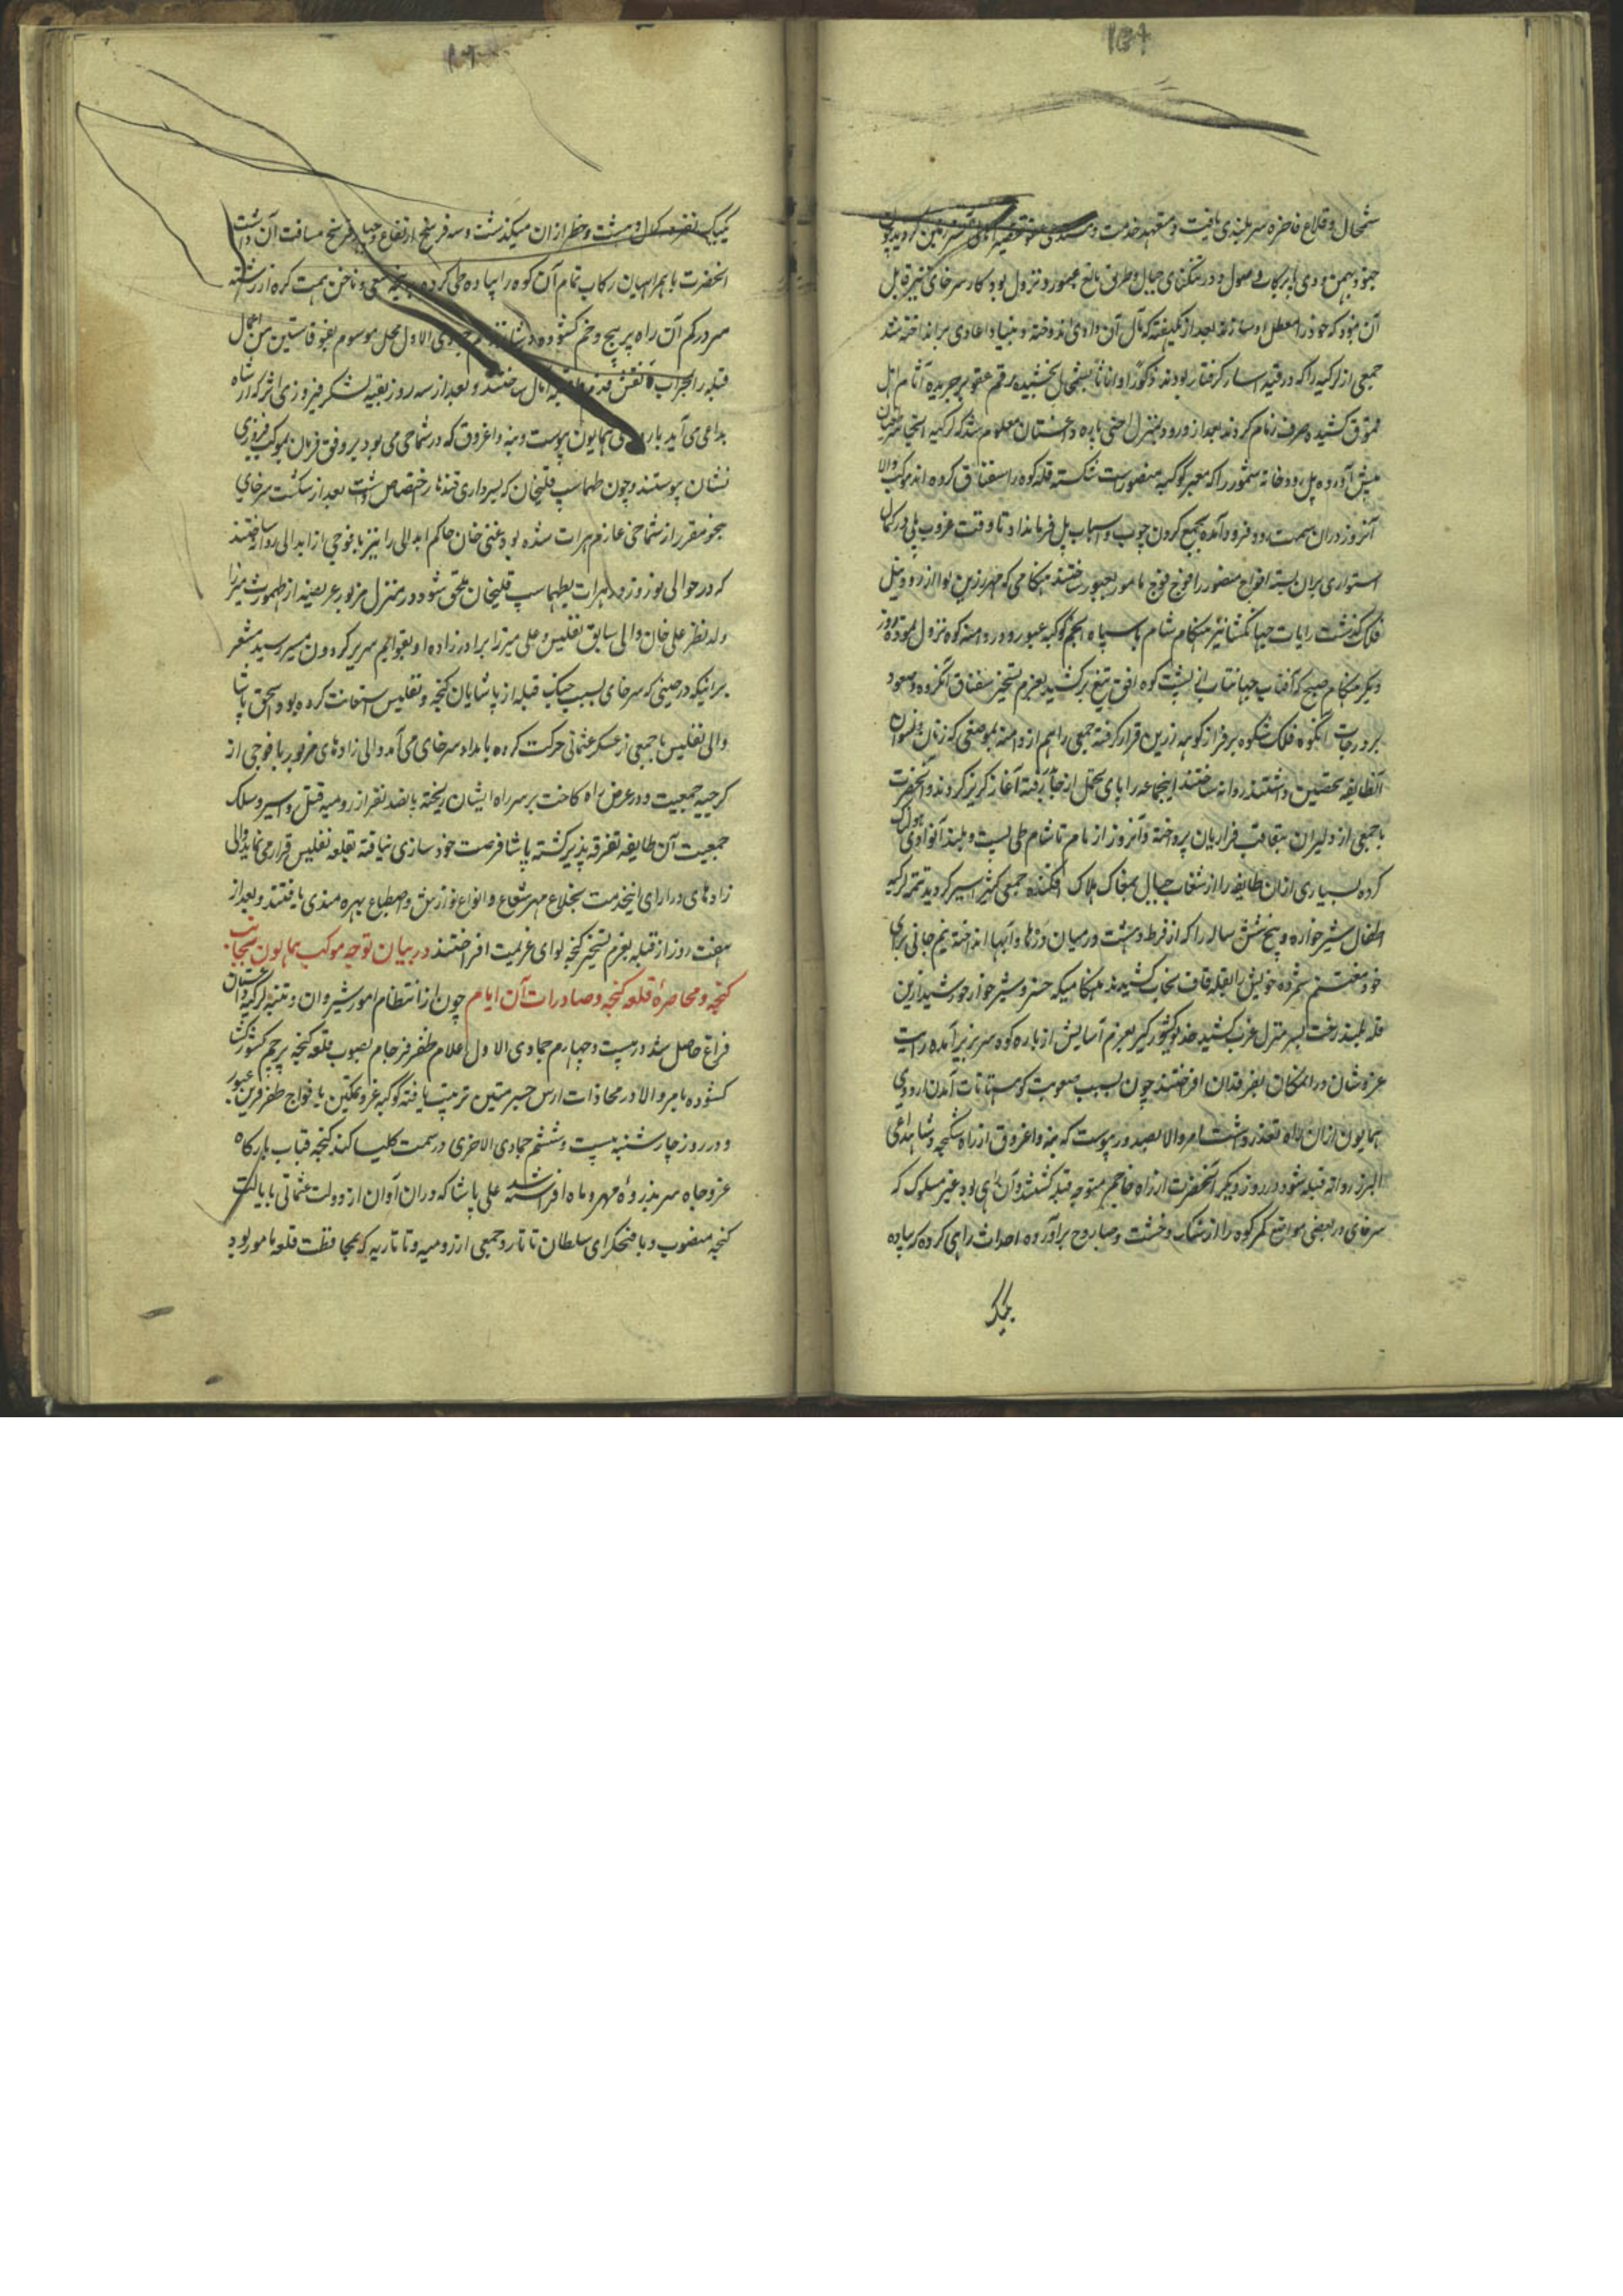 ۱۵۹
شمخال و قلاع فاخره سربلندی یافت و متعهد خدمت و
جنود بهمن و دی بابرکاب وصول و در تنکنای جبال و طرق مانع عبور و نزول بود کار سرخای
آن نبود که خود را معطل او سازند بعد از
جمعی از لزکیه را که در قید اسار کرفتار بودند ذکورا و اناثا بشمخال بخشیده رقم عفو بر جریده آثام اهل
قموق کشیده صرف زمام کردند بعد از ورود بمنزل باره داغستان معلوم شد که لزکیه آنجا
پیش آورده پل رودخانه سمور را که معبر کوکبه منصور است شکسته قله کوه را سقناق کرده اند موکب والا
آنروز در ان سمت رود فرود آمده بجمع کردن چوب و اسباب پل فرمان داد تا وقت غروب پلی در کمال
استواری بران بسته افواج منصور را فوج فوج مامور بعبور ساختند هنکامی که مهر زرین لوا از رود نیل
فلک کذشت رایات جهانکشا نیز هنکام شام با سپاه انجم کوکبه عبور و در دامنه کوه نزول نموده روز
دیکر هنکام صبح که آفتاب جهانتاب از پشت کوه افق تیغ برکشید بعزم تسخیر سقناق آنکروه صعود
بر درجات آنکوه فلک شکوه بر فراز کوهه زرین قرار کرفته جمعی را هم از دامنه بموضعی که زنان و نسوان
آنطایفه تحصن داشتند روانه ساختند اینجماعه را پای تحمل از جا رفته آغاز کریز کردند و آنحضرت
با جمعی از دلیران بتعاقب فراریان پرداخته و آنروز از بام تا شام طی پست و بلند آنوادی هولناک
کرده بسیاری از ان طایفه را از شعاب جبال بمغاک هلاک افکنده جمعی کثیر اسیر کردید تتمه لزکیه
اطفال شیرخواره و پنج شش ساله را که از فرط وحشت در میان دره ها و آبها انداخته نیم جانی برای
خود مغتنم شمرده خویش را بقله قاف نجات کشیدند هنکامیکه خسرو شیر خوار خورشید ازین
قله بلند رخت بسر منزل غرب کشید خدیو کشورکیر بعزم آسایش از باره کوه سر بزیر آمده رایت
عز و شان در انمکان بفرقدان افراختند چون بسبب صعوبت کوهستانات آمدن اردوی
همایون از ان راه تعذر داشت امر والا بصدور پیوست که بنه و اغروق از راه شکی و شاه داغی
البرز روانه قبله شود و در روز دیکر آنحضرت از راه خاچمز متوجه قبله کشتند و آن راهی بود غیر مسلوک که
سرخای در بعضی مواضع کمر کوه را از سنک و خشت و صاروج برآورده احداث راهی کرده که پیاده
یکیک
یکیک نفر در کمال وحشت و خطر از ان میکذشت و سه فرسخ ارتفاع و چهار فرسخ مسافت آن داشت
آنحضرت با همراهیان رکاب تمام آن کوه را پیاده طی کرده به پنجه سعی و ناخن همت کره از رشته
سر در کم آن راه پر پیچ و خم کشوده جمادی الاول محل موسوم من اعمال
قبله را بعد از سه روز بقیه لشکر فیروزی اثر که از راه
بداغی می آمدند باردوی همایون پیوست و بنه و اغروق که در شماخی می بود بر وفق فرمان بموکب فیروزی
نشان پیوستند و چون طهماسب قلیخان که بسرداری قندهار اختصاص داشت بعد از شکست سرخای
بنحو مقرر از شماخی عازم هرات شده بود غنی خان حاکم ابدالی را نیز با فوجی از ابدالی روانه ساختند
که در حوالی نوروز در هرات بطهماسب قلیخان ملحق شود در منزل مزبور عریضه از طهمورث میرزا
ولد نظر علی خان والی سابق تفلیس و علی میرزا برادرزاده او بقوایم سریر کردون مسیر رسید مشعر
برانیکه در حینی که سرخای بسبب جنک قبله از پاشایان کنجه و تفلیس استعانت کرده بود اسحق پاشا
والی تفلیس با جمعی از عسکر عثمانی حرکت کرده بامداد سرخای می آمد والی زادهای مزبور با فوجی از
کرجیه جمعیت و در عرض راه کاخت بر سر راه ایشان ریخته پانصد نفر از رومیه قتل و اسیر و سلک
جمعیت آن طایفه تفرقه پذیر کشته پاشا فرصت خودسازی نیافته بقلعه تفلیس قرار می نماید والی
زادهای در ازای اینخدمت بخلاع مهر شعاع و انواع نوازش و اصطناع بهره مندی یافتند و بعد از
هفت روز از قبله بعزم تسخیر کنجه لوای عزیمت افراختند در بیان توجه موکب همایون بجانب
کنجه و محاصره قلعه کنجه و صادرات آن ایام چون از انتظام امور شیروان و تنبیه لزکیه داغستان
فراغ حاصل شد در بیست و چهارم جمادی الاول اعلام ظفر فرجام بصوب قلعه کنجه پرچم کشور کشا
کشوده بامر والا در محاذات ارس جسر متین ترتیب یافته کوکبه عز و تمکین با افواج ظفر قرین عبور
و در روز چارشنبه بیست و ششم جمادی الاخری در سمت کلیسا کند کنجه قباب بارکاه
عز و جاه سر بذروه مهر و ماه افراشته شد علی پاشا که دران آوان از دولت عثمانی بایالت
کنجه منصوب و با فتحکرای سلطان تاتار و جمعی از رومیه و تاتاریه که بمحافظت قلعه مامور بود